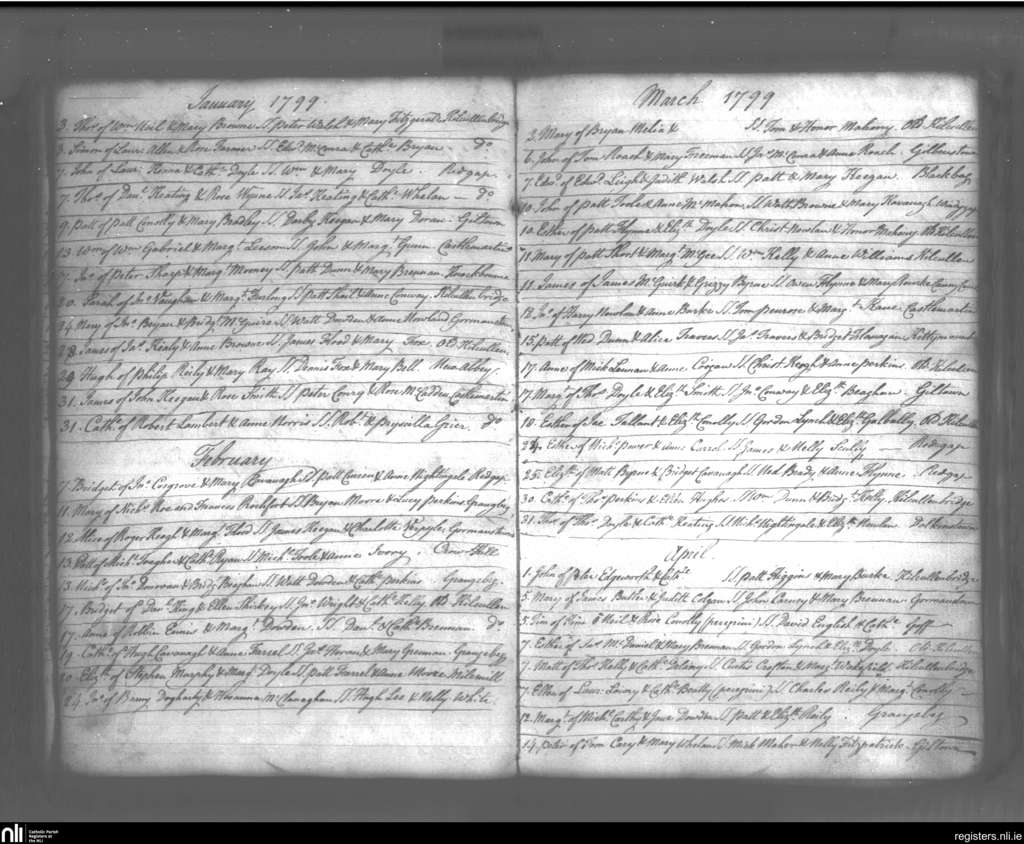 January 1799
3. Thos. of Wm. Neil & Mary Browne SS Peter Walsh & Mary Fitzgerald Kilcullenbridge
3. Simon of Laur: Allen & Rose Farmer SS Edwd. McConra & Cathe. Bryan do
7. John of Laur: Kenna & Cathe. Doyle SS Wm & Mary Doyle. Redgap.
7. Thos. of Danl. Keating & Rose Wynne SS Jas. Keating & Cathe. Whelan — do
9. Patt of Patt Conolly & Mary Bradley SS Darby Keegan & Mary Doran. Giltown
13. Wm of Wm Gabriel & Margt. Leeson SS John & Margt. Quin Castlemartin
17. Jno. of Peter Tharp & Margt. Mooney SS Patt Dunn & Mary Brennan
20. Sarah of Jno. Vaughan & Margt. Furlong SS Patt & Anne Conway. Kilcullenbridge
24. Mary of Jno. Bryan & Bridgt. McGuire SS Watt Dowden & Anne Nowland Gormanstown
28. James of Jas. Kealy & Anne Browne SS James Flood & Mary Fox Old Kilcullen
29 Hugh of Philip Reily & Mary Ray SS Dennis Fox & Mary Bell. New Abbey
31. James of John Keegan & Rose Smith SS Peter Conry & Rose McCadden Castlemartin
31. Cathe. of Robert Lambert & Anne Norris SS Robt. & Pryscilla Grier. do
February
7. Bridget of Jno. Cosgrove & Mary Cavanagh SS Patt Curien & Anne Nightingale Redgap
11. Mary of Richd. Roe and Frances Rochfort SS Bryan Moore & Lucy Perkins. Grangbeg
12. Alice of Roger Keogh & Margt. Flood SS James Keegan & Charlotte Gormanstown
13. Patt of Michl. Toogher & Cathe. Ryan SS Michl. Toole & Anne Ivory. Crow Hill
13. Michl. of Jno. Donovan & Bridgt. Beaghan SS Watt Dowden & Cathe. Perkins. Grangebeg.
17. Bridget of Danl. King & Ellen Hickey SS Jno. Wright & Cathe. Kelly Old Kilcullen
17. Anne of Robbin Ennis & Margt. Dowden. SS Danl. & Cathe. Brennan do
19. Cathe. of Hugh Cavanagh & Anne Farrel SS Jno. Horan & Mary Grennan. Grangebegg
20. Elizth. of Stephen Murphy & Margt. Doyle SS Patt Farrel & Anne Moore Milemill
24. Jno. of Barny Dogherty & Hanna McClanaghan SS Hugh Lee & Nelly White.
March 1799
3. Mary of Bryan Melia & SS Tom & Honor Mahony. Old Kilcullen
6. John of Tom Roach & Mary Freeman SS Jno. McConra & Anne Roach. Gilbinstown
7 Edwd. of Edwd. Leigh & Judith Walsh SS Patt & Mary Keegan. Blackhall
10. John of Patt Toole & Anne McMahon SS Watt Browne & Mary Kavanagh
10. Esther of Patt Flynne & Elizth. Doyle SS Christr. Nowlan & Honor Mahony Old Kilcullen
11 Mary of Patt Short & Margt. McGee SS Wm Kelly & Anne Williams Kilcullen
11. James of James McGuirk & Grizzy Byrne SS Owen Flynne & Mary Rourke
12. Jno. of Harry Nowlan & Anne Burke SS Tom Penrose & Margt. Kane Castlemartin
15. Patt of Ned Dunn & Alice Travers SS Jas. Travers & Bridget Flanagan
17. Anne of Mick Lennan & Anne Coogan SS Christ. Keogh & Anne Perkins Old Kilcullen
17. Margt. of Thos. Doyle & Elizth. Smith SS Jno. Conway & Elizth. Beaghan Giltown
10. Esther of Joe Tallant & Elizth. Conolly SS Gordon Lynch & Elizth. Galbally Old Kilcullen
24. Esther of Richd. Power & Anne Carrol SS James & Nelly Scully — Redgap
25. Elizth. of Matt Byrne & Bridget Cavanagh SS Ned Brady & Anne Flynne. Redgap
30. Cathe. of Thos. Perkins & Elldr. Hughes SS Wm Dunn & Bridgt. Kelly. Kilcullenbridge
31. Thos. of Thos. Doyle & Cathe. Keating SS Richd. Nightingale & Elizth. Nowlan
April.
1. John of Peter Edgeworth & Cathe. SS Patt Higgins & Mary Burke. Kilcullenbridge
5. Mary of James Butler & Judith Colgan SS John Carney & Mary Brennan. Gormanstown
5. Tim of Tim O Neil & Rose Conolly (peregrini) SS David English & Cathe. Goff —
7. Esther of Jas. McDaniel & Mary Brennan SS Gordon Lynch & Elizth. Doyle. Old Kilcullen
7. Matt of Thos. Kelly & Cathe. Delany SS Curtis Crofton & Margt. Wakefield Kilcullenbridge
7. Ellen of Laur: Lowry & Cathe. Beatty (peregrini) SS Charles Reily & Margt. Conolly —
12. Margt. of Michl. Carthy & Jane Dowden SS Patt & Elizth. Reily. Grangebeg
14. Peter of Tom Cary & Mary Whelan SS Mick Maher & Nelly Fitzpatrick. Giltown
nli
Catholic Parish
Registers at
the NLI
registers.nli.ie